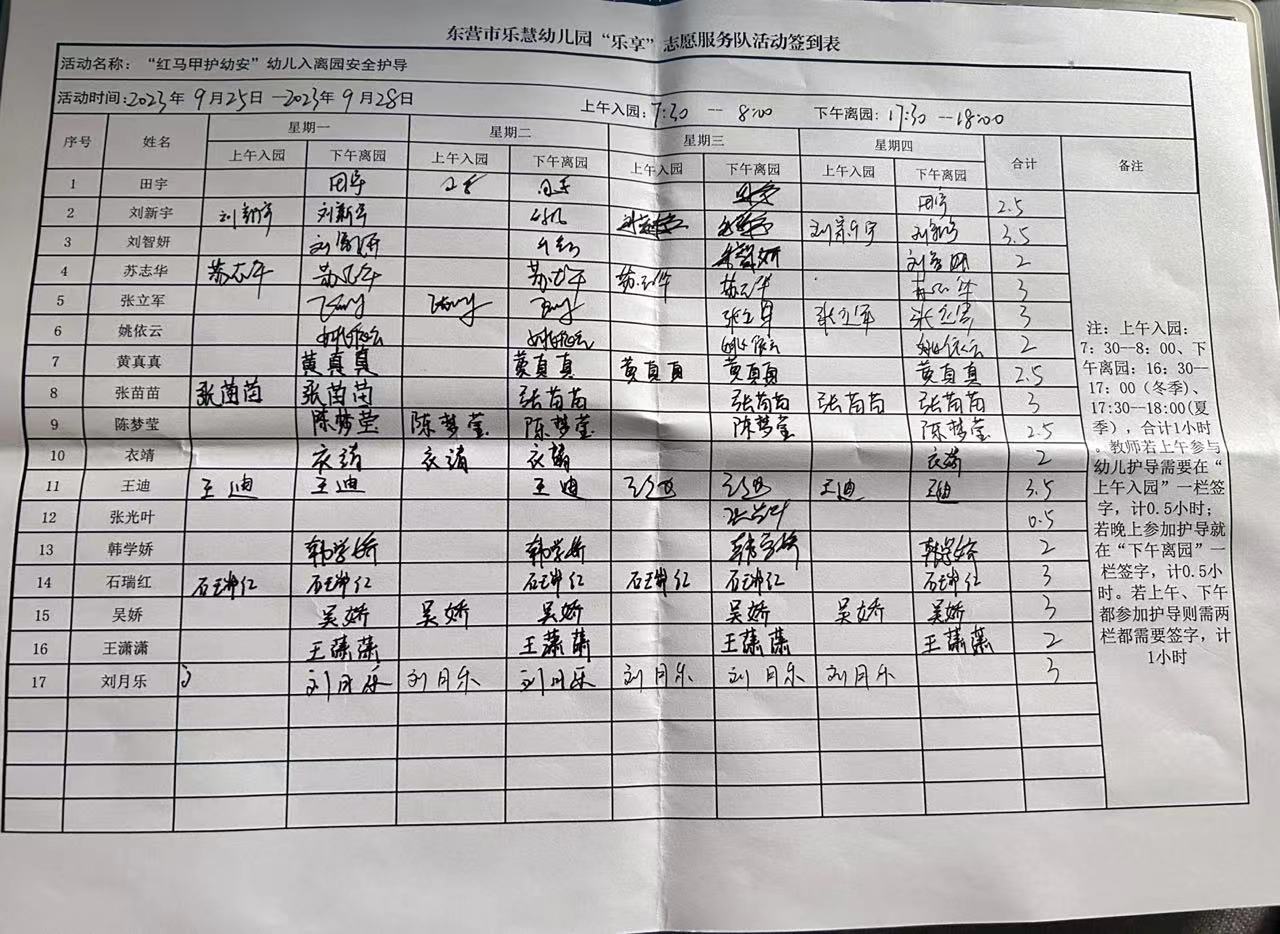 东营市乐慧幼儿园“乐享”志愿服务队活动签到表
活动名称：“红马甲护幼安”幼儿入离园安全护导
活动时间:2023年 9月25日 —2023年 9月28日 上午入园:7:30 -- 8:00 下午离园: 17:30 --18:00
序号 姓名 星期一 星期二 星期三 星期四 合计 备注
上午入园 下午离园 上午入园 下午离园 上午入园 下午离园 上午入园 下午离园
1 田宇 田宇 田宇 田宇 2.5
2 刘新宇 刘新宇 刘新宇 刘新宇 刘新宇 3.5
3 刘智妍 刘智妍 刘智妍 2
4 苏志华 苏志华 苏志华 苏志华 苏志华 苏志华 3
5 张立军 张立军 张立军 张立军 3
6 姚依云 姚依云 姚依云 姚依云 姚依云 2
7 黄真真 黄真真 黄真真 黄真真 黄真真 黄真真 2.5
8 张苗苗 张苗苗 张苗苗 张苗苗 张苗苗 张苗苗 张苗苗 3
9 陈梦莹 陈梦莹 陈梦莹 陈梦莹 陈梦莹 陈梦莹 2.5
10 衣靖 衣靖 衣靖 衣靖 衣靖 2
11 王迪 王迪 王迪 王迪 王迪 王迪 王迪 王迪 3.5
12 张光叶 张光叶 0.5
13 韩学娇 韩学娇 韩学娇 韩学娇 韩学娇 2
14 石瑞红 石瑞红 石瑞红 石瑞红 石瑞红 石瑞红 石瑞红 3
15 吴娇 吴娇 吴娇 吴娇 吴娇 吴娇 吴娇 3
16 王潇潇 王潇潇 王潇潇 王潇潇 2
17 刘月乐 刘月乐 刘月乐 刘月乐 刘月乐 刘月乐 刘月乐 3
注：上午入园：
7：30--8：00、下
午离园：16：30--
17：00（冬季）、
17:30--18:00(夏
季），合计1小时
。教师若上午参与
幼儿护导需要在“
上午入园”一栏签
字，计0.5小时；
若晚上参加护导就
在“下午离园”一
栏签字，计0.5小
时。若上午、下午
都参加护导则需两
栏都需要签字，计
1小时